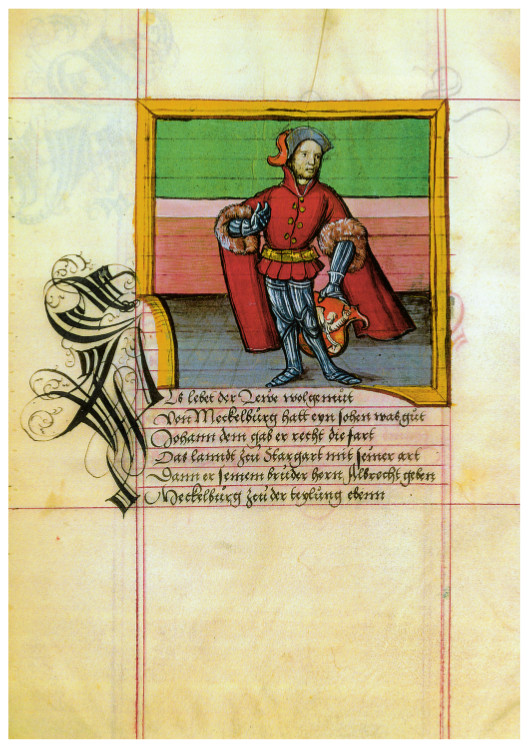 Als lebet der Lewe wolgemut
Von Meckelburg hatt eyn sohen was gut
Johann dem gab er recht die fart
Das lanndt zcu Stargart mit seiner art
Dann er seinem bruder hern Albrecht geben
Meckelburg zcu der teylung ebenn